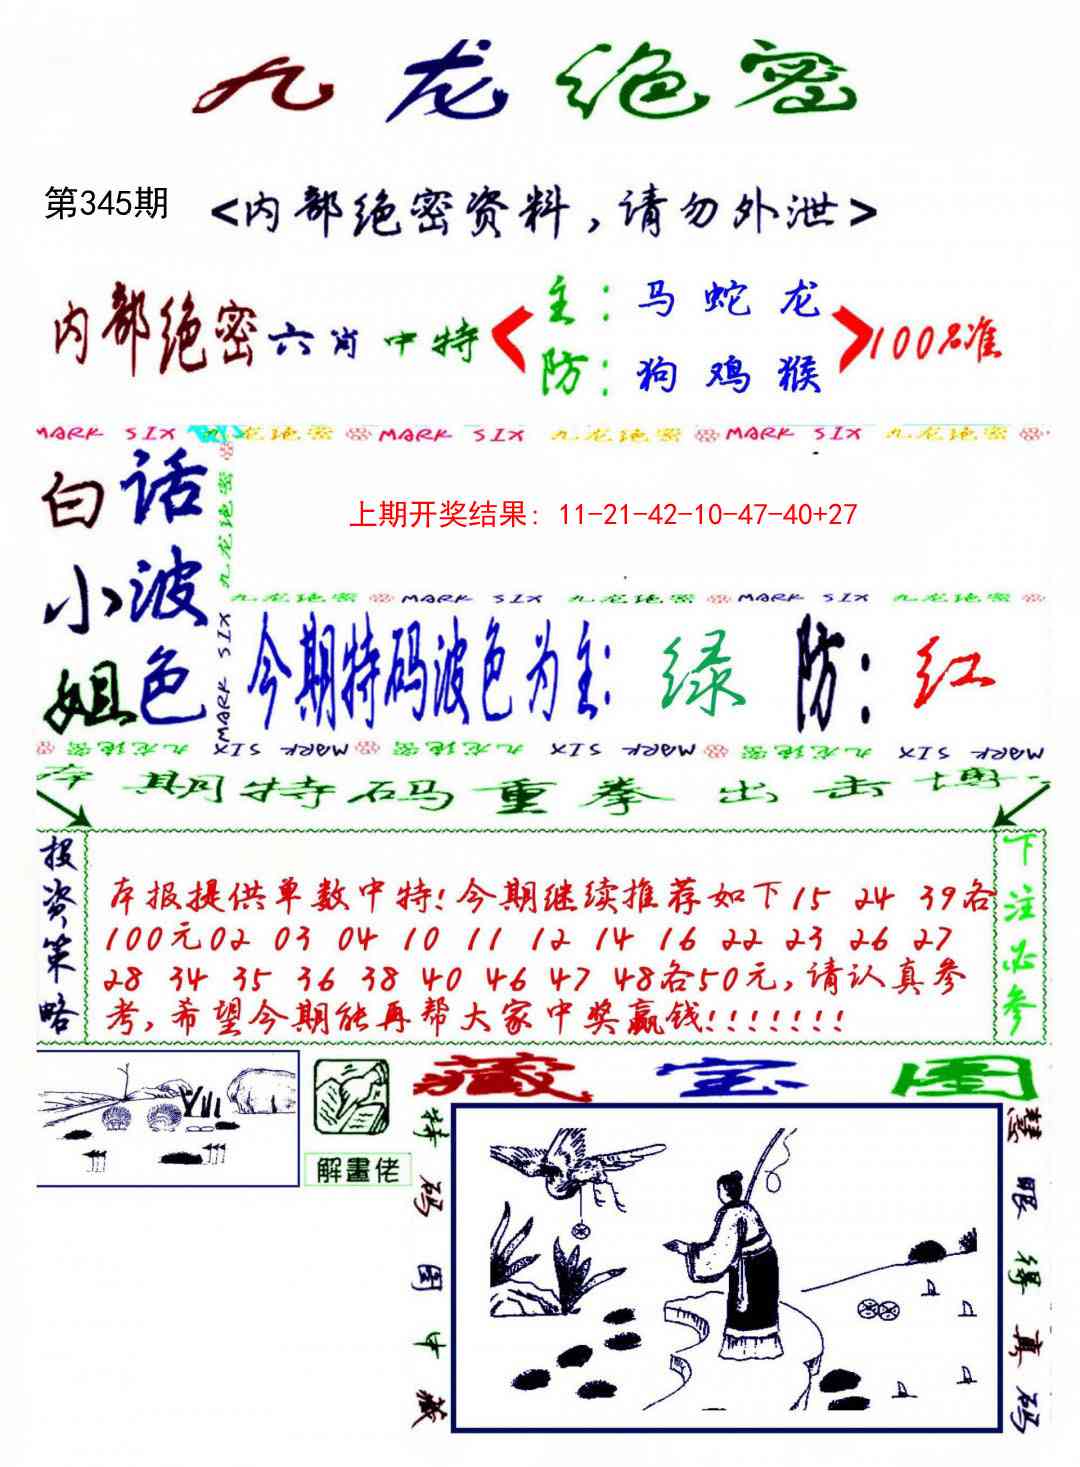 九龙绝密
第345期
<内部绝密资料，请勿外泄>
内部绝密六肖中特
主：马 蛇 龙
防：狗 鸡 猴
100%准
MARK SIX 九龙绝密 MARK SIX 九龙绝密 MARK SIX 九龙绝密
白小姐
话波色
九龙绝密
MARK SIX
上期开奖结果：11-21-42-10-47-40+27
九龙绝密 MARK SIX 九龙绝密 MARK SIX 九龙绝密
今期特码波色为主：绿 防：红
九龙绝密 MARK SIX 九龙绝密 MARK SIX 九龙绝密 MARK SIX
本期特码重拳出击博
投资策略
本报提供单数中特!今期继续推荐如下15 24 39各
100元02 03 04 10 11 12 14 16 22 23 26 27
28 34 35 36 38 40 46 47 48各50元,请认真参
考,希望今期能再帮大家中奖赢钱!!!!!!!
下注必参
解畫佬
藏宝图
特码图中藏
慧眼得真码